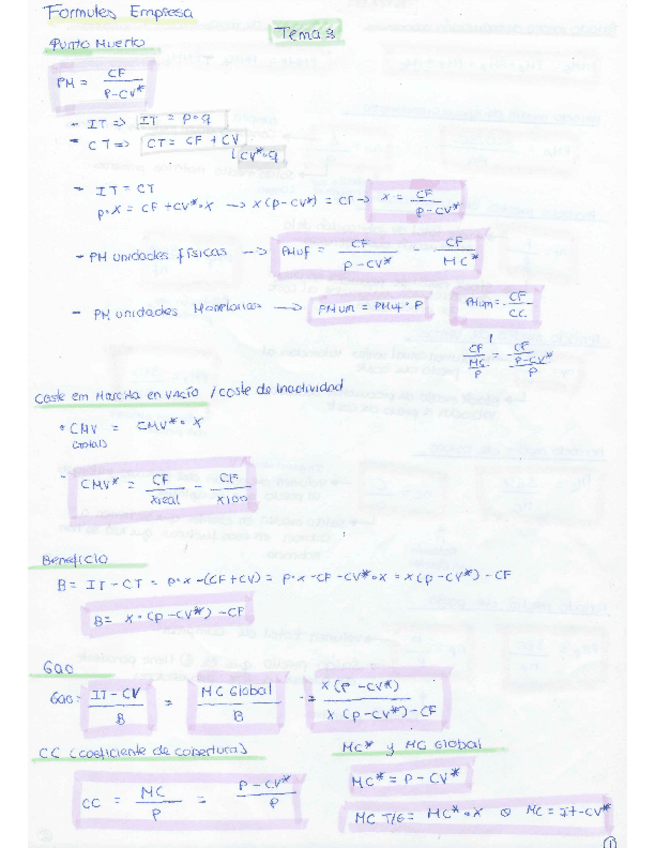 Formules Empresa
Tema 3
Punto Muerto
PM = CF / P-CV*
- IT => IT = P·q
- CT => CT = CF + CV
↓ CV*·q
- IT = CT
P·X = CF + CV*·X -> X(P-CV*) = CF -> X = CF / P-CV*
- PM unidades físicas -> PMuf = CF / P-CV* - CF / MC*
- PM unidades Monetarias -> PMum = PMuf·P PMum = CF / CC
CF / MC / P = CF / P-CV* / P
Coste em Marcha en vacío / coste de Inactividad
· CMV = CMV*·X
(total)
- CMV* = CF / Xreal - CF / X100
Beneficio
B = IT-CT = P·X-(CF+CV) = P·X-CF-CV*·X = X(P-CV*)-CF
B = X·(P-CV*)-CF
GAO
GAO = IT-CV / B = MC Global / B = X(P-CV*) / X(P-CV*)-CF
CC (coeficiente de cobertura)
CC = MC / P = P-CV* / P
MC* y MC Global
MC* = P-CV*
MC T/G = MC*·X o MC = It-CV*
1